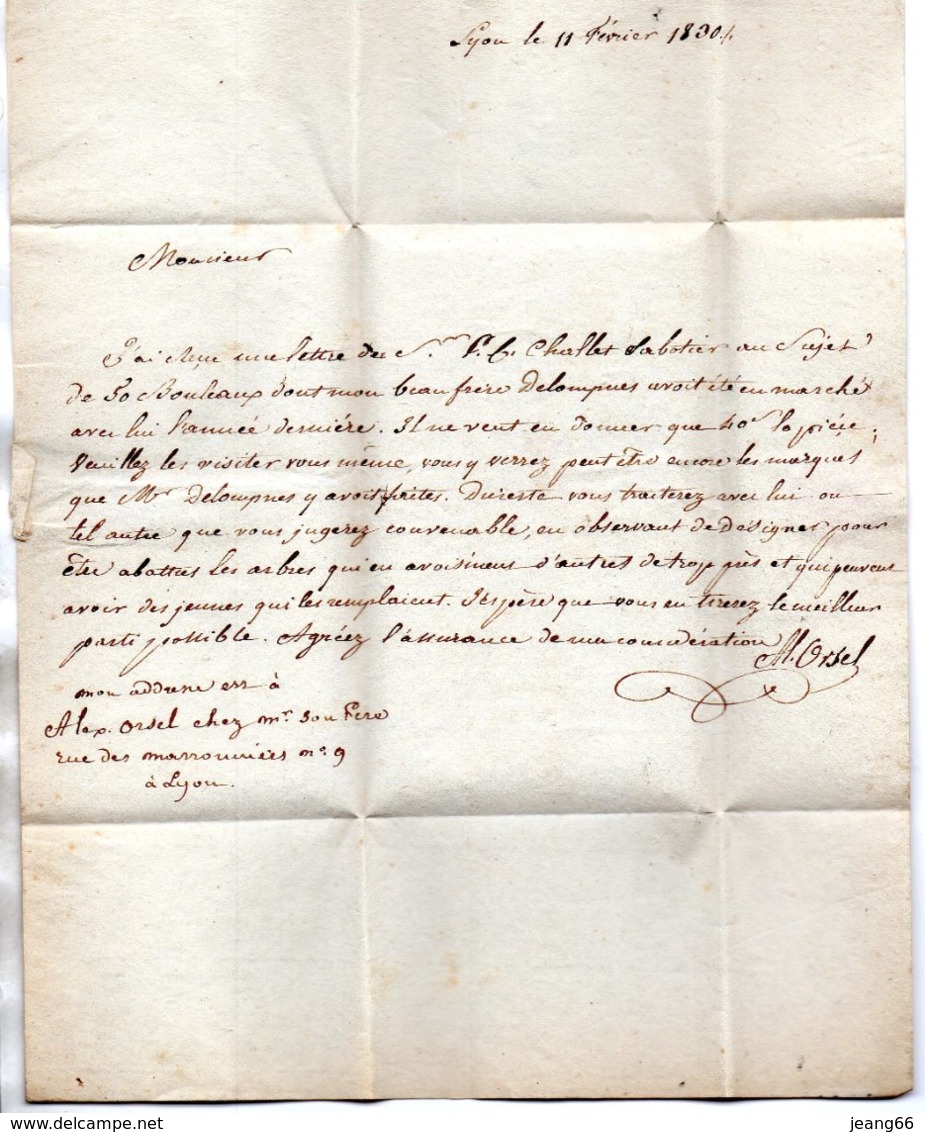 Lyon le 11 Février 1830./.
Monsieur
J'ai reçu une lettre de Challet Sabotier au Sujet
de 50 Bouleaux dont mon beaufrère Delompnes avoit été en marché
avec lui l'année dernière. Il ne veut en donner que 40s la pièce,
Veuillez les visiter vous même, vous y verrez peut être encore les marques
que Mr Delompnes y avoit faites. Dureste vous traiterez avec lui ou
tel autre que vous jugerez convenable, en observant de Désigner pour
être abattus les arbres qui en avoisinent d'autres de trop près et qui peuvent
avoir des jeunes qui les remplacent. J'espère que vous en tirerez le meilleur
parti possible. Agréez l'assurance de ma considération
Al. Orsel
mon addresse est à
Alex. Orsel chez mr. son Pere
rue des marronniers no. 9
à Lyon.
delcampe.net
jeang66